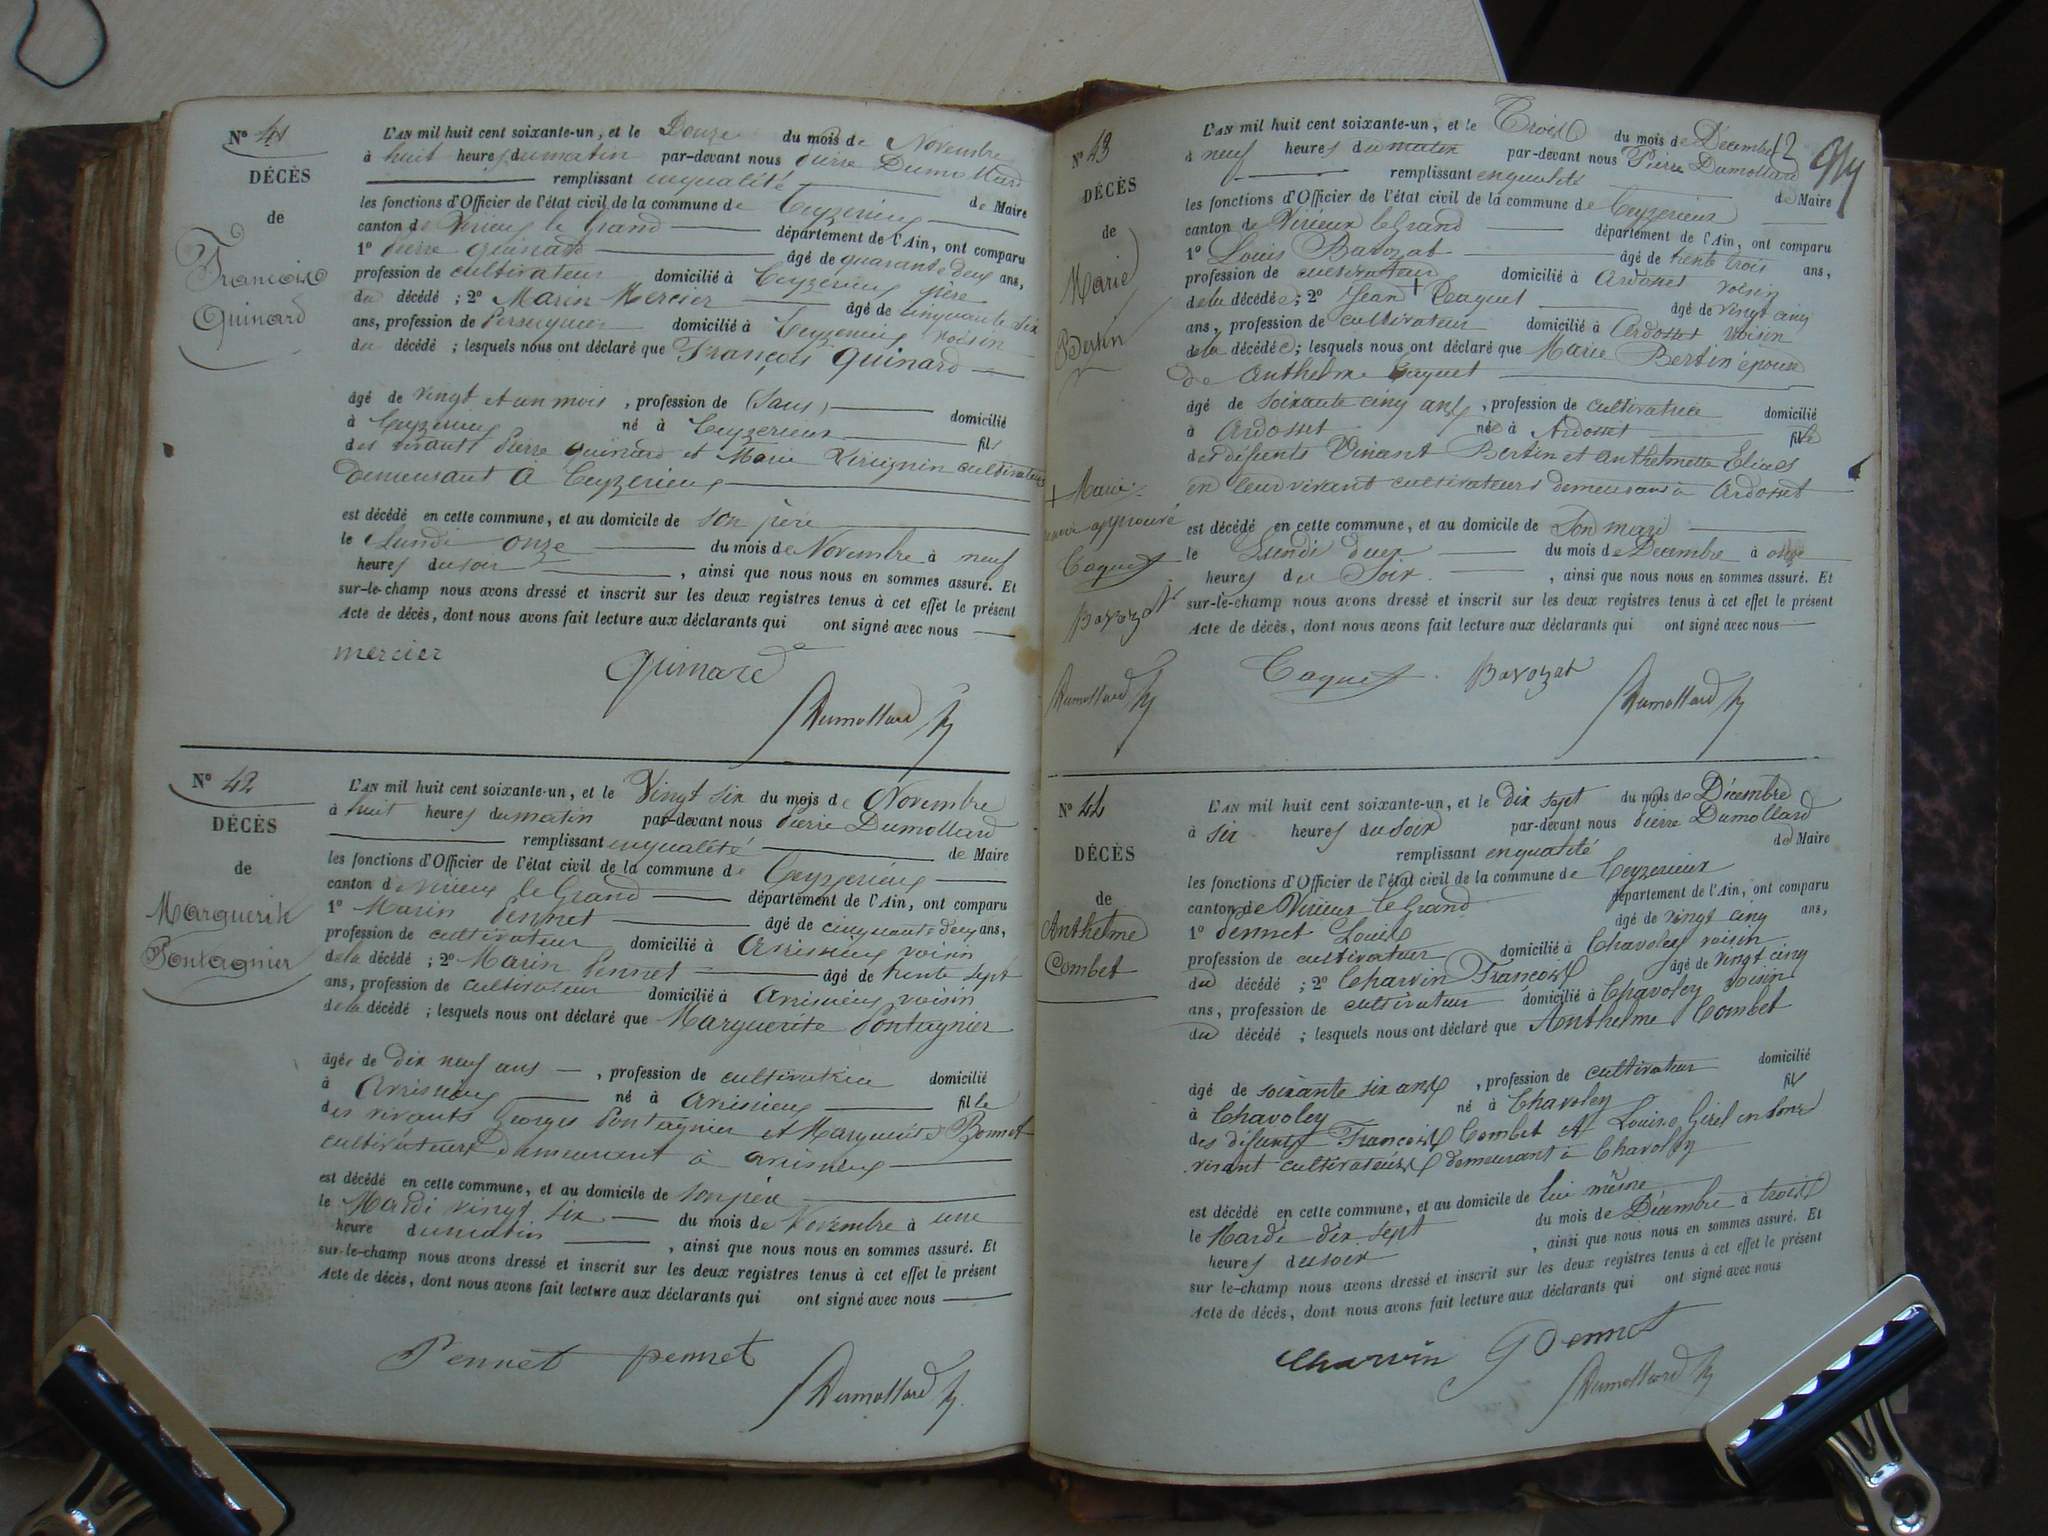 N° 41
DÉCÈS
de
François
Quinard
L'AN mil huit cent soixante-un, et le Douze du mois de Novembre
à huit heures du matin par-devant nous Pierre Dumollard
remplissant en qualité de Maire
les fonctions d'Officier de l'état civil de la commune de Ceyzerieu
canton de Virieu le Grand département de l'Ain, ont comparu
1° Pierre Quinard âgé de quarante deux ans,
profession de cultivateur domicilié à Ceyzerieu père
du décédé ; 2° Marin Mercier âgé de cinquante six
ans, profession de domicilié à Ceyzerieu voisin
du décédé ; lesquels nous ont déclaré que François Quinard
âgé de vingt et un mois, profession de (Sans) domicilié
à Ceyzerieu né à Ceyzerieux fils
des vivants Pierre Quinard et Marie cultivateurs
demeurant à Ceyzerieu
est décédé en cette commune, et au domicile de son père
le Lundi onze du mois de Novembre à neuf
heures du soir, ainsi que nous nous en sommes assuré. Et
sur-le-champ nous avons dressé et inscrit sur les deux registres tenus à cet effet le présent
Acte de décès, dont nous avons fait lecture aux déclarants qui ont signé avec nous
mercier Quinard
Dumollard
N° 42
DÉCÈS
de
Marguerite
Pontagnier
L'AN mil huit cent soixante-un, et le Vingt six du mois de Novembre
à huit heures du matin par-devant nous Pierre Dumollard
remplissant en qualité de Maire
les fonctions d'Officier de l'état civil de la commune de Ceyzerieu
canton de Virieu le Grand département de l'Ain, ont comparu
1° Marin Pennet âgé de cinquante deux ans,
profession de cultivateur domicilié à Avrissieu voisin
de la décédé ; 2° Marin Pennet âgé de trente sept
ans, profession de cultivateur domicilié à Avrissieu voisin
de la décédé ; lesquels nous ont déclaré que Marguerite Pontagnier
âgée de dix neuf ans, profession de cultivatrice domicilié
à Avrissieu né à Avrissieu fille
des vivants Georges Pontagnier et Marguerite Bonnet
cultivateurs demeurant à Avrissieu
est décédé en cette commune, et au domicile de son père
le Mardi vingt six du mois de Novembre à une
heure du matin, ainsi que nous nous en sommes assuré. Et
sur-le-champ nous avons dressé et inscrit sur les deux registres tenus à cet effet le présent
Acte de décès, dont nous avons fait lecture aux déclarants qui ont signé avec nous
Pennet pennet
Dumollard
N° 43
DÉCÈS
de
Marie
Bertin
+ Marie
approuvé
Caquet
Bavozat
Dumollard
L'AN mil huit cent soixante-un, et le Trois du mois de Décembre
à neuf heures du matin par-devant nous Pierre Dumollard
remplissant en qualité de Maire
les fonctions d'Officier de l'état civil de la commune de Ceyzerieux
canton de Virieux le Grand département de l'Ain, ont comparu
1° Louis Bavozat âgé de trente trois ans,
profession de cultivateur domicilié à Ardosset voisin
de la décédée ; 2° Jean + Caquet âgé de vingt cinq
ans, profession de cultivateur domicilié à Ardosset voisin
de la décédée ; lesquels nous ont déclaré que Marie Bertin épouse
de Anthelme Caquet
âgé de soixante cinq ans, profession de cultivatrice domicilié
à Ardosset née à Ardosset fille
des défunts Vinant Bertin et Anthelmette
en leur vivant cultivateurs demeurans à Ardosset
est décédé en cette commune, et au domicile de Son mari
le Lundi deux du mois de Décembre à onze
heures du Soir, ainsi que nous nous en sommes assuré. Et
sur-le-champ nous avons dressé et inscrit sur les deux registres tenus à cet effet le présent
Acte de décès, dont nous avons fait lecture aux déclarants qui ont signé avec nous
Caquet Bavozat
Dumollard
N° 44
DÉCÈS
de
Anthelme
Combet
L'AN mil huit cent soixante-un, et le dix sept du mois de Décembre
à six heures du soir par-devant nous Pierre Dumollard
remplissant en qualité de Maire
les fonctions d'Officier de l'état civil de la commune de Ceyzerieux
canton de Virieux le Grand département de l'Ain, ont comparu
1° Pennet Louis âgé de vingt cinq ans,
profession de cultivateur domicilié à Chavoley voisin
du décédé ; 2° Charvin François âgé de vingt cinq
ans, profession de cultivateur domicilié à Chavoley voisin
du décédé ; lesquels nous ont déclaré que Anthelme Combet
âgé de soixante six ans, profession de cultivateur domicilié
à Chavoley né à Chavoley fils
des défunts François Combet et Louise Girel en leur
vivant cultivateurs demeurant à Chavoley
est décédé en cette commune, et au domicile de lui même
le Mardi dix sept du mois de Décembre à trois
heures du soir, ainsi que nous nous en sommes assuré. Et
sur le-champ nous avons dressé et inscrit sur les deux registres tenus à cet effet le présent
Acte de décès, dont nous avons fait lecture aux déclarants qui ont signé avec nous
Charvin Pennet
Dumollard